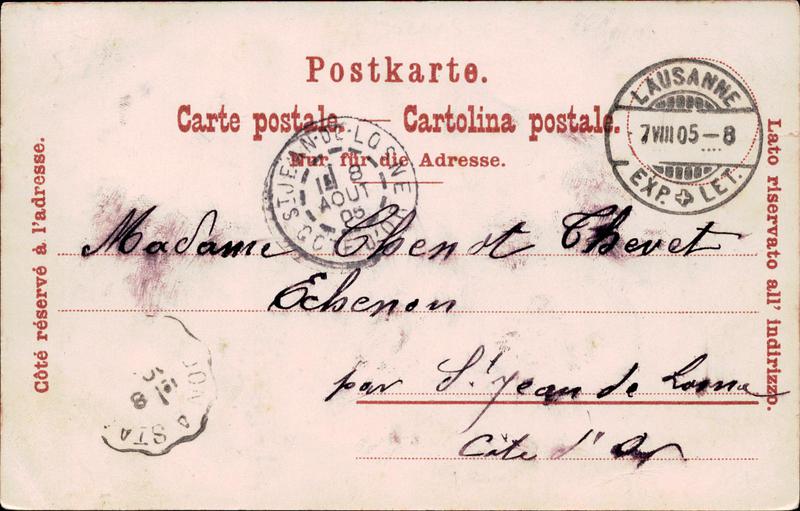 Postkarte.
Carte postale. — Cartolina postale.
Nur für die Adresse.
Côté réservé à l'adresse.
Lato riservato all' indirizzo.
LAUSANNE
7 VIII 05 – 8
EXP. LET.
ST JEAN-DE-LOSNE
8
AOUT
05
COTE D'OR
Madame Chenot Thevet
Echenon
par St Jean de Losne
Côte d'Or